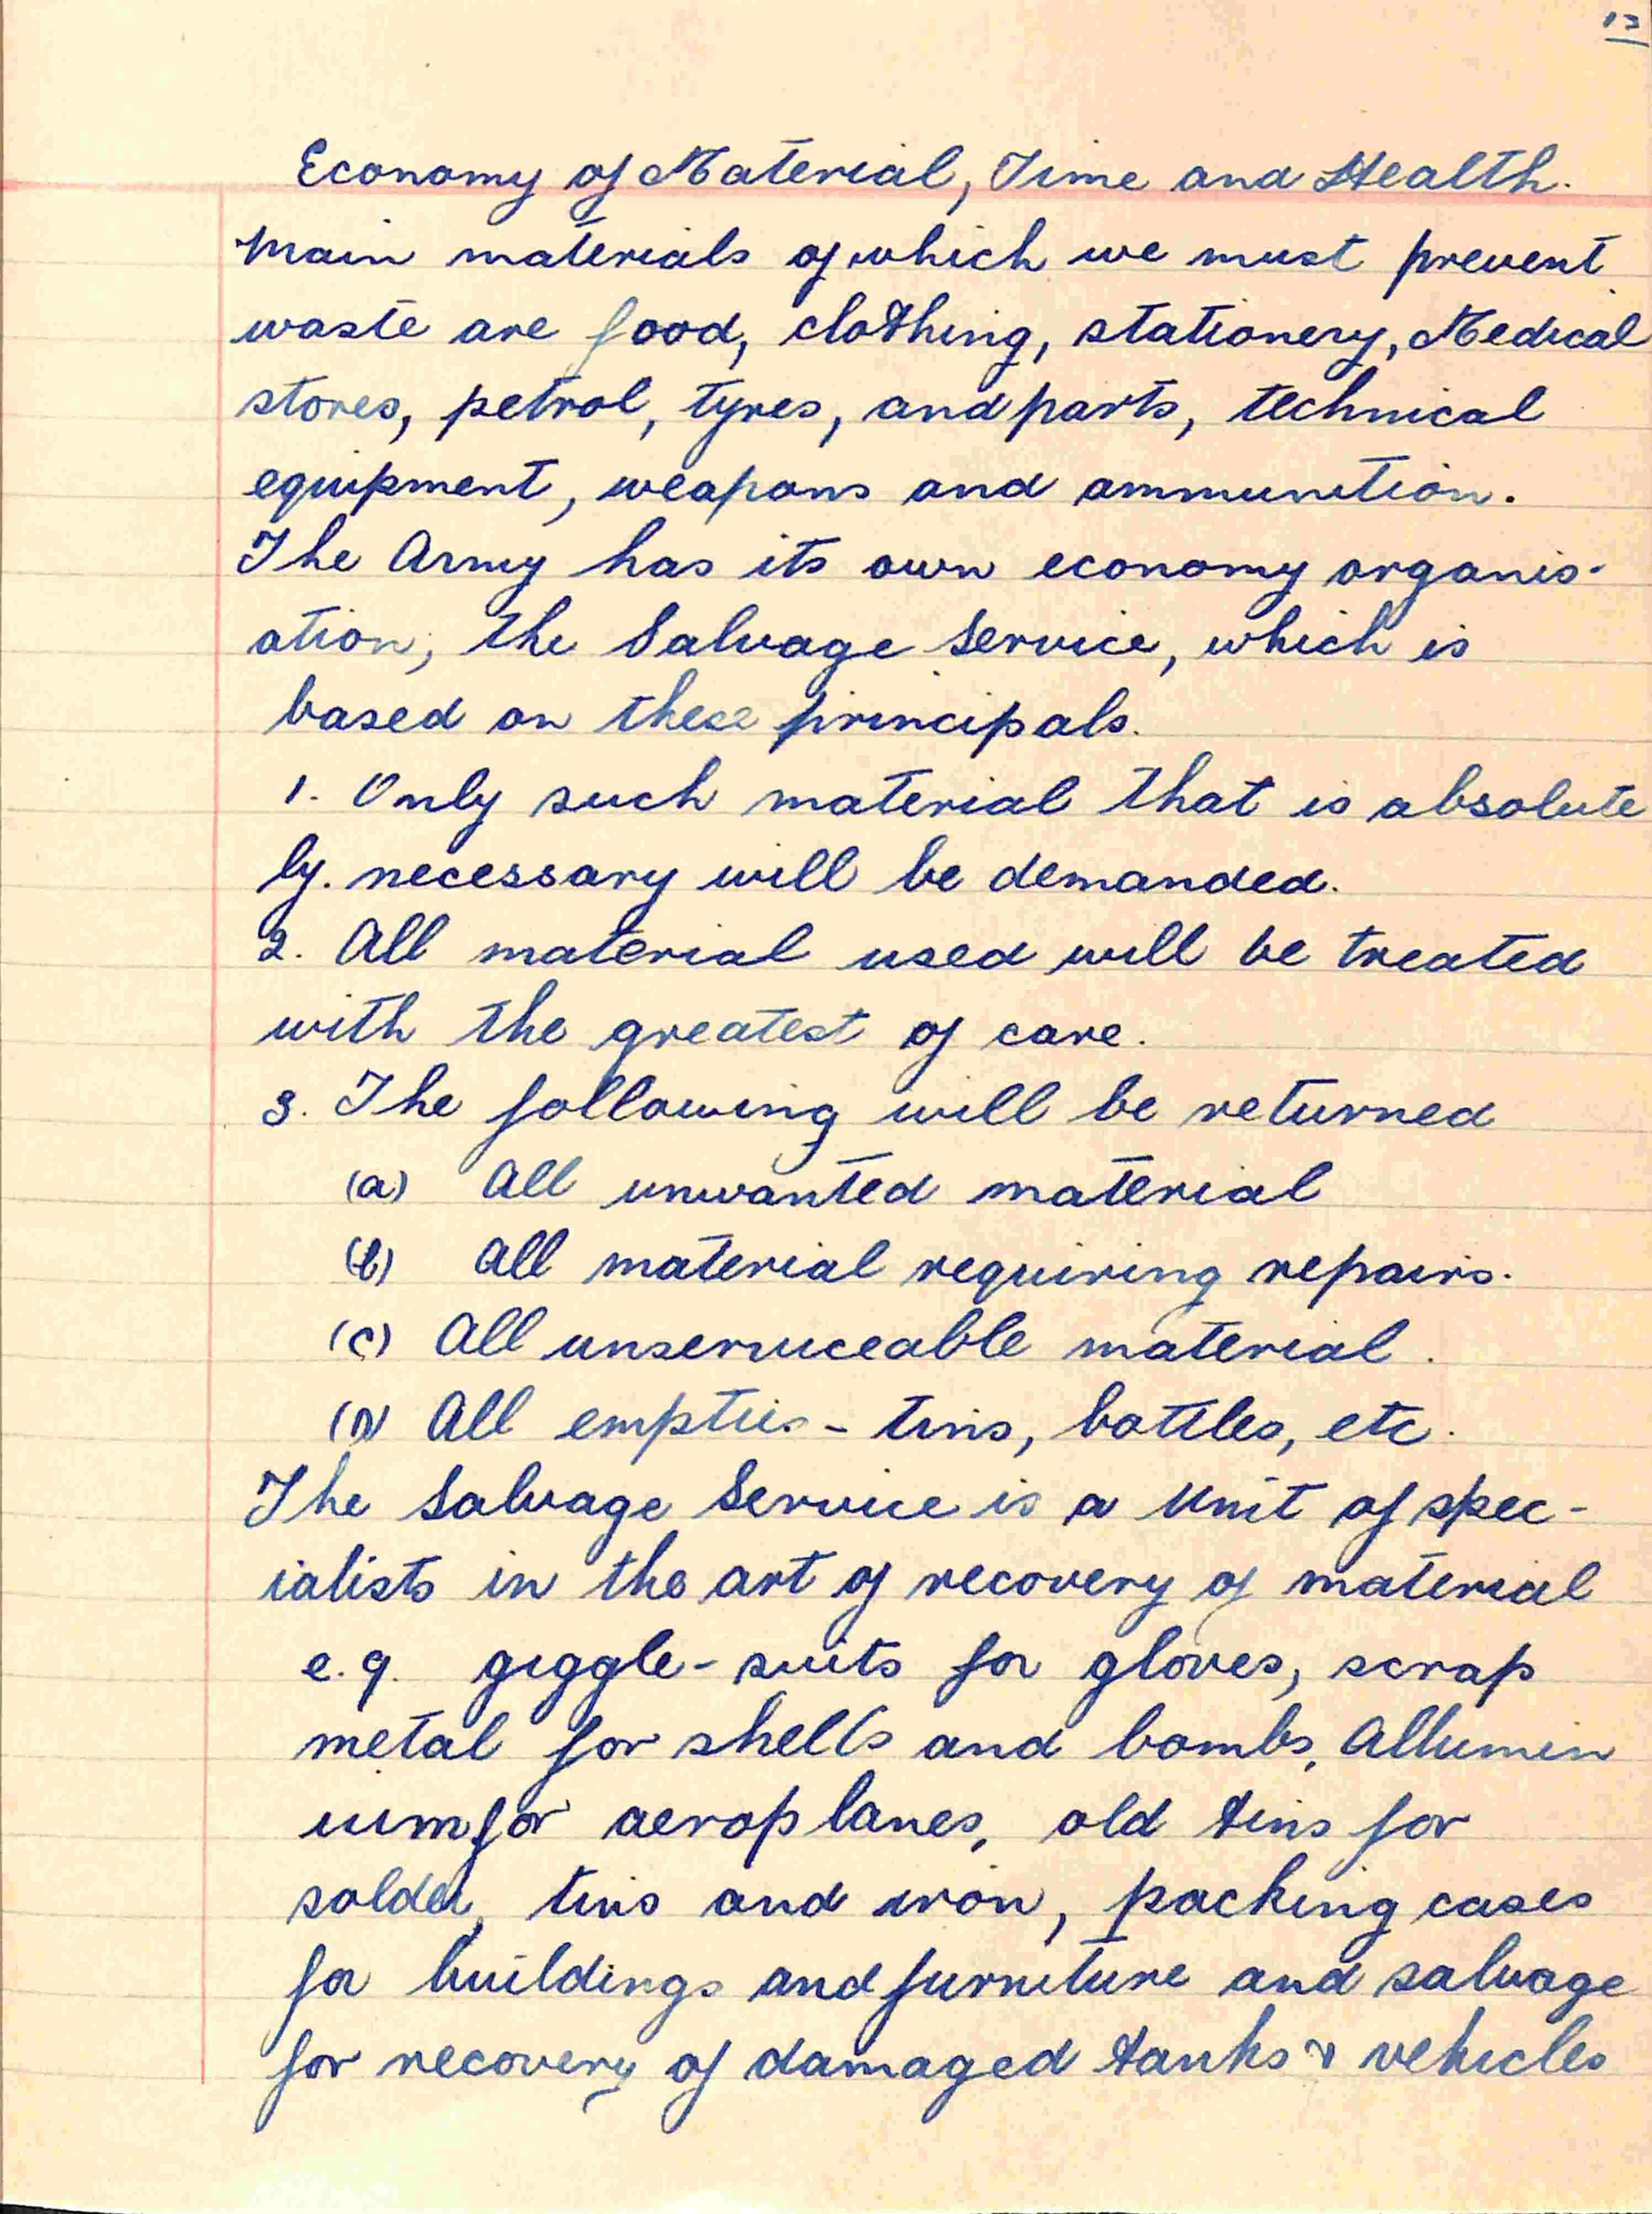 13
Economy of Material, Time and Health.
Main materials of which we must prevent
waste are food, clothing, stationery, Medical
stores, petrol, tyres, and parts, technical
equipment, weapons and ammunition.
The Army has its own economy organis-
ation, the Salvage Service, which is
based on these principals.
1. Only such material that is absolute
ly. necessary will be demanded.
2. All material used will be treated
with the greatest of care.
3. The following will be returned
(a) All unwanted material
(b) All material requiring repairs.
(c) All unserviceable material.
(D) All empties - tins, bottles, etc.
The Salvage Service is a Unit of spec-
ialists in the art of recovery of material
e.g. giggle-suits for gloves, scrap
metal for shells and bombs, Allumin
ium for aeroplanes, old tins for
solder, tins and iron, packing cases
for buildings and furniture and salvage
for recovery of damaged tanks & vehicles